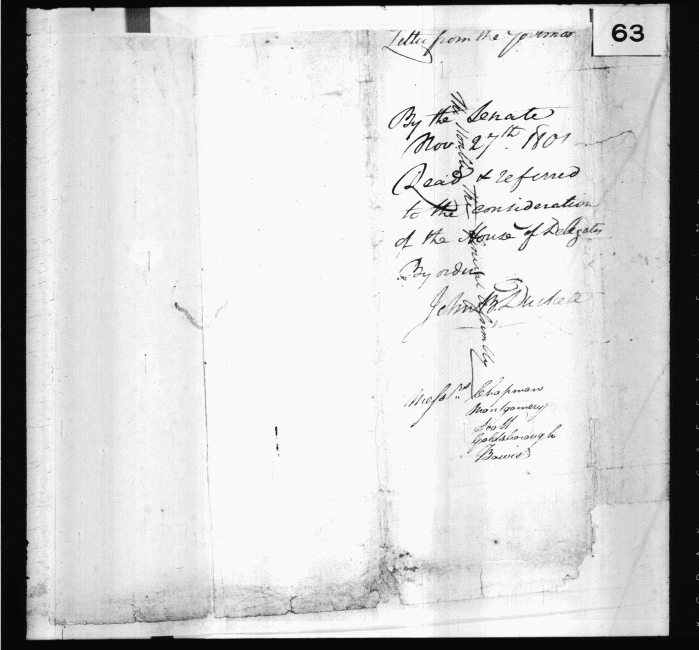 63
Letter from the Governor
By the Senate
Nov. 27th. 1801
Read & referred
to the consideration
of the House of Delegates
By order
John B. Duckett
The Honble The General Assembly
Messrs. Chapman
Montgomery
Scott
Goldsborough
Bowie